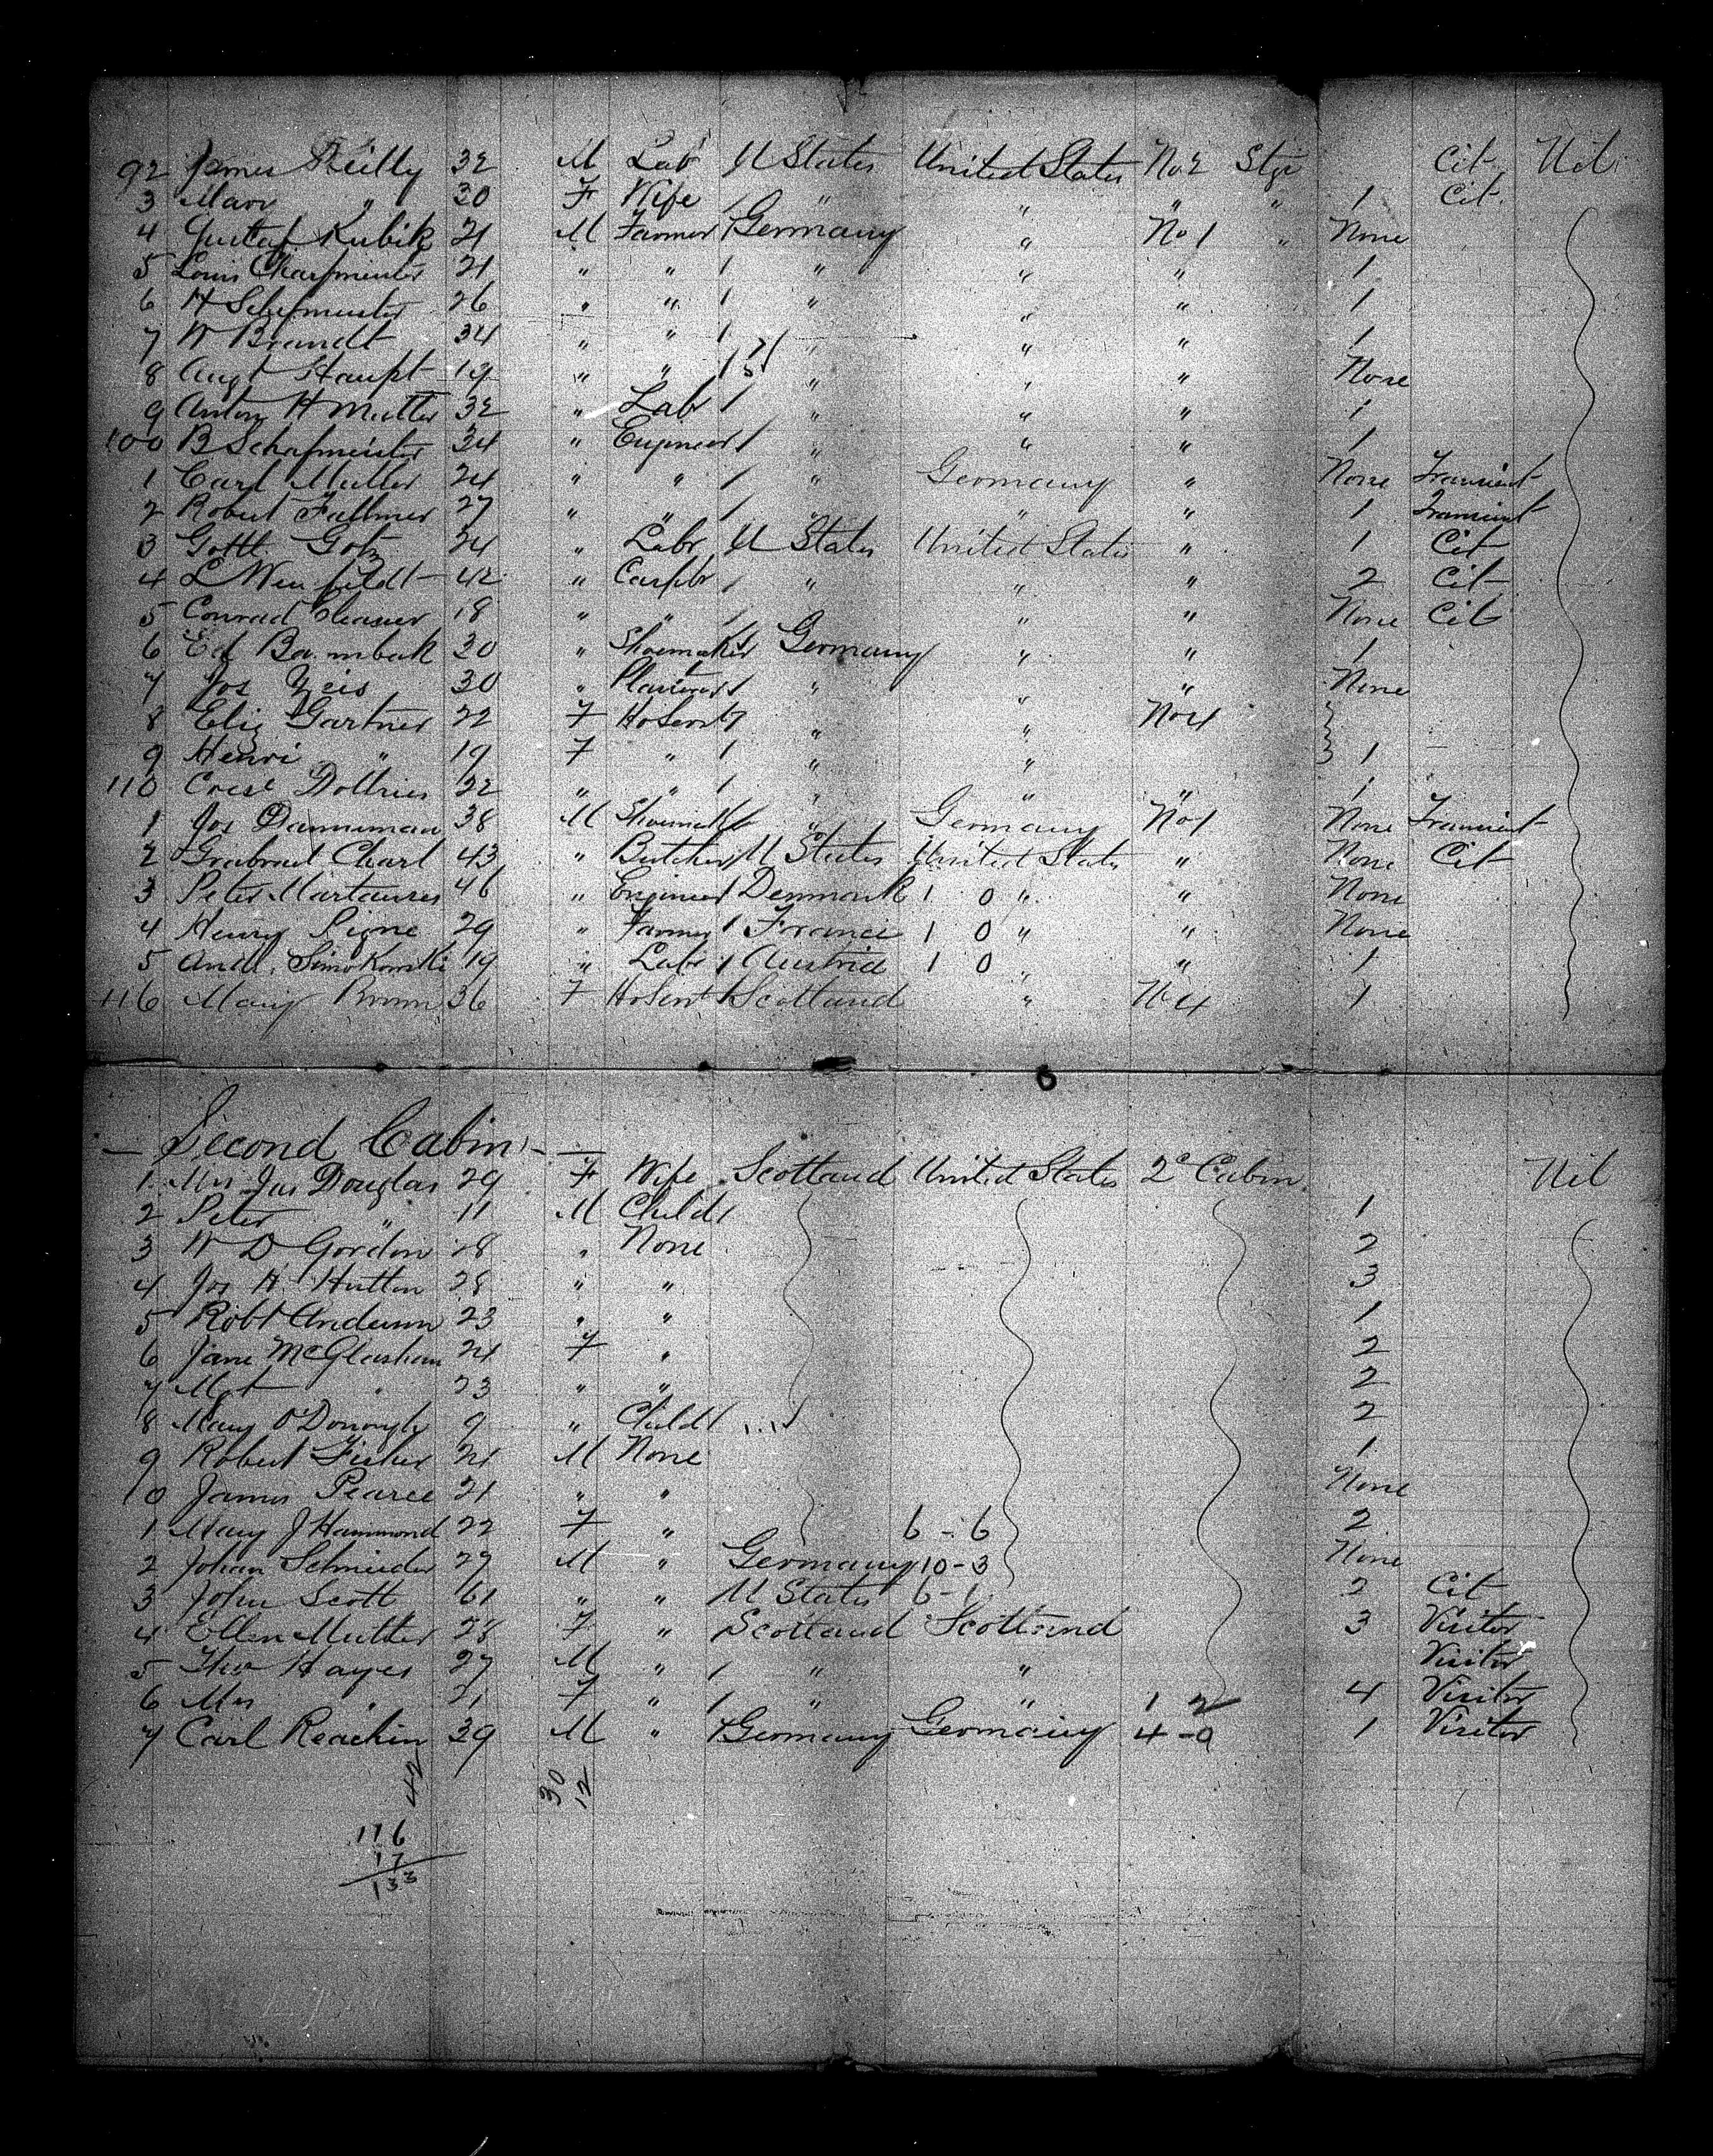 92 James Reilly 32 M Lab U States United States No 2 Stge Cit Nil
3 Mary " 30 F Wife " " " " 1 Cit
4 Gustaf Kubik 21 M Farmer Germany " No 1 " None
5 Louis 21 " " 1 " " " 1
6 H 26 " " 1 " " " 1
7 W Brandt 34 " " 1 " " " 1
8 Augt Haupt 19 " " 1 " " " None
9 Anton H Muller 32 " Labr 1 " " " 1
100 B Schafmeister 34 " Engineer 1 " " " 1
1 Carl Muller 24 " " 1 " Germany " None Transient
2 Robert 27 " " 1 " " " 1 Transient
3 Gottl Gotz 24 " Labr U States United States " 1 Cit
4 L 42 " Carptr 1 " " " 2 Cit
5 Conrad 18 " " 1 " " None Cit
6 Ed 30 " Shoemaker Germany " " 1
7 Jos Zeis 30 " 1 " " " None
8 Eliz Gartner 22 F HoServt " " No 4
9 Henri " 19 F " 1 " " 1
110 22 " " 1 " " " 1
1 Jos Danniman 38 M " Germany No 1 None Transient
2 Charl 43 " Butcher U States United States " None Cit
3 Peter 46 " Engineer Denmark 1 0 " " None
4 Henry 29 " Farmer 1 France 1 0 " " None
5 19 " Labr 1 Austria 1 0 " " 1
116 Mary Brown 36 F HoServt 1 Scotland " No 4 1
— Second Cabin —
1 Mrs Jas Douglas 29 F Wife Scotland United States 2c Cabin Nil
2 Peter " 11 M Child 1 1
3 W D Gordon 28 " None 2
4 Jos H Hutton 28 " " 3
5 Robt Anderson 23 " " 1
6 Jane McGlashan 24 F " 2
7 Mgt " 23 " " 2
8 Mary O'Donoughe 9 " Child 1 2
9 Robert Fisher 21 M None 1
10 James Pearce 21 " " None
1 Mary J Hammond 22 F " 6 - 6 2
2 Johan Schneider 27 M " Germany 10 - 3 None
3 John Scott 61 " " U States 6 - 1 2 Cit
4 Ellen Mutter 28 F " Scotland Scotland 3 Visitor
5 Hayes 27 M " 1 " " Visitor
6 Mrs " 21 F " 1 " " 1 2 4 Visitor
7 Carl Reachin 39 M " Germany Germany 4 - 0 1 Visitor
42
30
12
116
17
133